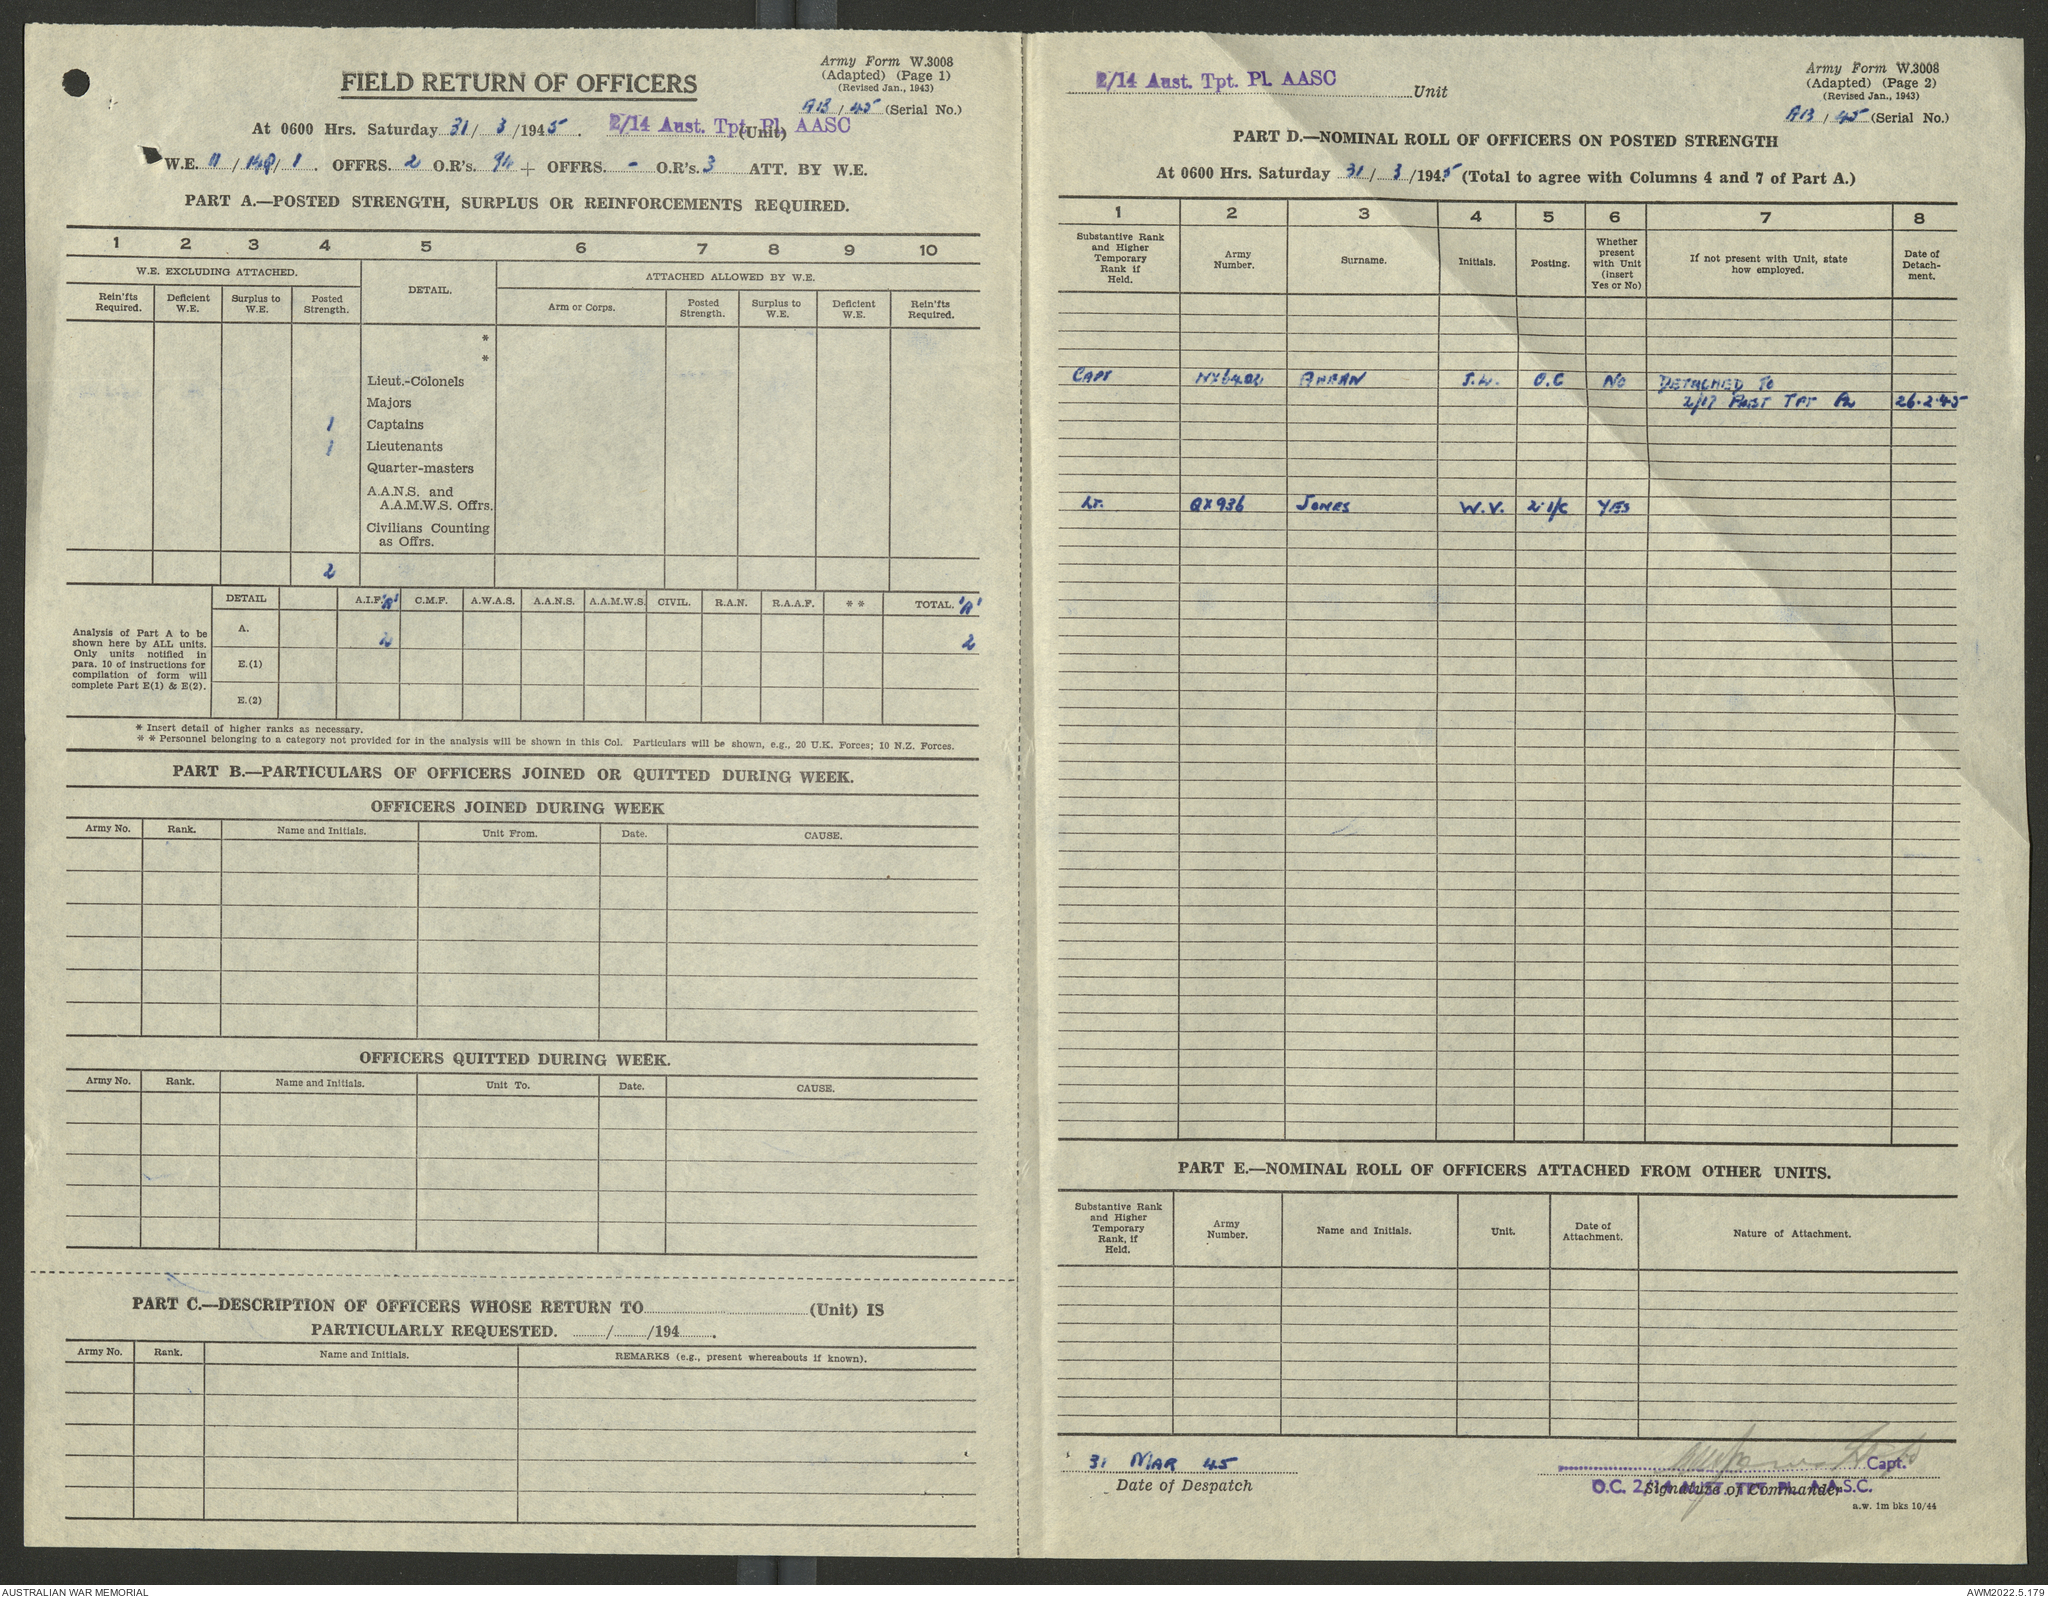 Army Form W.3008
(Adapted) (Page 1)
(Revised Jan., 1943)
FIELD RETURN OF OFFICERS
AB / 45 (Serial No.)
At 0600 Hrs. Saturday 31 / 3 /1945. 2/14 Aust. Tpt. Pl. AASC (Unit)
W.E. 11 / / 1. OFFRS. 2 O.R's. 94 + OFFRS. - O.R's. 3 ATT. BY W.E.
PART A.—POSTED STRENGTH, SURPLUS OR REINFORCEMENTS REQUIRED.
1 2 3 4 5 6 7 8 9 10
W.E. EXCLUDING ATTACHED. DETAIL. ATTACHED ALLOWED BY W.E.
Rein'fts Required. Deficient W.E. Surplus to W.E. Posted Strength. Arm or Corps. Posted Strength. Surplus to W.E. Deficient W.E. Rein'fts Required.
*
*
Lieut.-Colonels
Majors
1 Captains
1 Lieutenants
Quarter-masters
A.A.N.S. and
A.A.M.W.S. Offrs.
Civilians Counting
as Offrs.
2
DETAIL A.I.F. 'A' C.M.F. A.W.A.S. A.A.N.S. A.A.M.W.S. CIVIL. R.A.N. R.A.A.F. * * TOTAL. 'A'
Analysis of Part A to be
shown here by ALL units.
Only units notified in
para. 10 of instructions for
compilation of form will
complete Part E(1) & E(2).
A. 2 2
E.(1)
E.(2)
* Insert detail of higher ranks as necessary.
* * Personnel belonging to a category not provided for in the analysis will be shown in this Col. Particulars will be shown, e.g., 20 U.K. Forces; 10 N.Z. Forces.
PART B.—PARTICULARS OF OFFICERS JOINED OR QUITTED DURING WEEK.
OFFICERS JOINED DURING WEEK
Army No. Rank. Name and Initials. Unit From. Date. CAUSE.
OFFICERS QUITTED DURING WEEK.
Army No. Rank. Name and Initials. Unit To. Date. CAUSE.
PART C.—DESCRIPTION OF OFFICERS WHOSE RETURN TO (Unit) IS
PARTICULARLY REQUESTED. / /194 .
Army No. Rank. Name and Initials. REMARKS (e.g., present whereabouts if known).
2/14 Aust. Tpt. Pl. AASC Unit
Army Form W.3008
(Adapted) (Page 2)
(Revised Jan., 1943)
AB / 45 (Serial No.)
PART D.—NOMINAL ROLL OF OFFICERS ON POSTED STRENGTH
At 0600 Hrs. Saturday 31 / 3 /1945 (Total to agree with Columns 4 and 7 of Part A.)
1 2 3 4 5 6 7 8
Substantive Rank and Higher Temporary Rank if Held. Army Number. Surname. Initials. Posting. Whether present with Unit (insert Yes or No) If not present with Unit, state how employed. Date of Detachment.
CAPT O.C NO DETACHED TO
2/17 AUST TPT PL 26.2.45
Lt. QX936 JONES W.V. 2 i/c YES
PART E.—NOMINAL ROLL OF OFFICERS ATTACHED FROM OTHER UNITS.
Substantive Rank and Higher Temporary Rank, if Held. Army Number. Name and Initials. Unit. Date of Attachment. Nature of Attachment.
31 MAR 45
Date of Despatch
Capt.
O.C. 2/14 AUST. TPT PL. A.A.S.C.
Signature of Commander
a.w. 1m bks 10/44
AUSTRALIAN WAR MEMORIAL
AWM2022.5.179